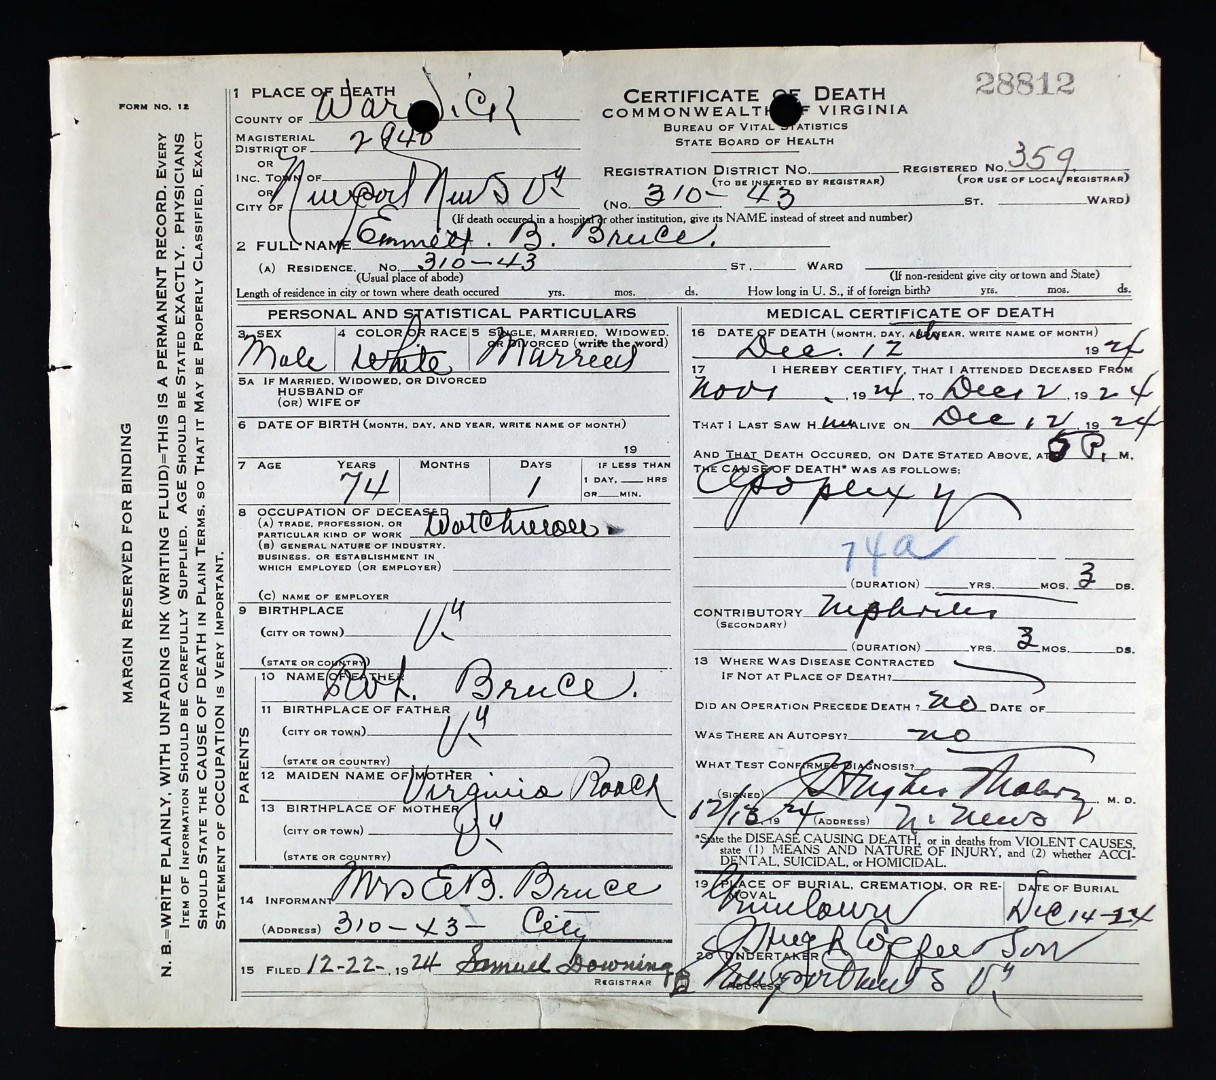 28812
FORM NO. 12
MARGIN RESERVED FOR BINDING
N. B.=WRITE PLAINLY, WITH UNFADING INK (WRITING FLUID)=THIS IS A PERMANENT RECORD. EVERY
ITEM OF INFORMATION SHOULD BE CAREFULLY SUPPLIED. AGE SHOULD BE STATED EXACTLY. PHYSICIANS
SHOULD STATE THE CAUSE OF DEATH IN PLAIN TERMS, SO THAT IT MAY BE PROPERLY CLASSIFIED, EXACT
STATEMENT OF OCCUPATION IS VERY IMPORTANT.
1 PLACE OF DEATH
COUNTY OF Warwick
MAGISTERIAL
DISTRICT OF 2940
OR
INC. TOWN OF
OR
CITY OF Newport News Va
CERTIFICATE OF DEATH
COMMONWEALTH OF VIRGINIA
BUREAU OF VITAL STATISTICS
STATE BOARD OF HEALTH
REGISTRATION DISTRICT NO. REGISTERED NO. 359
(TO BE INSERTED BY REGISTRAR) (FOR USE OF LOCAL REGISTRAR)
(NO. 310-43 ST. WARD)
(If death occured in a hospital or other institution, give its NAME instead of street and number)
2 FULL NAME Emmett. B. Bruce.
(A) RESIDENCE. NO. 310-43 ST. WARD
(Usual place of abode) (If non-resident give city or town and State)
Length of residence in city or town where death occured yrs. mos. ds. How long in U. S., if of foreign birth? yrs. mos. ds.
PERSONAL AND STATISTICAL PARTICULARS
3 SEX 4 COLOR OR RACE 5 SINGLE, MARRIED, WIDOWED,
OR DIVORCED (write the word)
Male White Married
5A IF MARRIED, WIDOWED, OR DIVORCED
HUSBAND OF
(OR) WIFE OF
6 DATE OF BIRTH (MONTH, DAY, AND YEAR, WRITE NAME OF MONTH)
19
7 AGE YEARS MONTHS DAYS IF LESS THAN
1 DAY, HRS
OR MIN.
74 1
8 OCCUPATION OF DECEASED
(A) TRADE, PROFESSION, OR
PARTICULAR KIND OF WORK Watchman
(B) GENERAL NATURE OF INDUSTRY,
BUSINESS, OR ESTABLISHMENT IN
WHICH EMPLOYED (OR EMPLOYER)
(C) NAME OF EMPLOYER
9 BIRTHPLACE
(CITY OR TOWN) Va
(STATE OR COUNTRY)
PARENTS
10 NAME OF FATHER Robt. Bruce.
11 BIRTHPLACE OF FATHER
(CITY OR TOWN) Va
(STATE OR COUNTRY)
12 MAIDEN NAME OF MOTHER Virginia Roach
13 BIRTHPLACE OF MOTHER
(CITY OR TOWN) Va
(STATE OR COUNTRY)
14 INFORMANT Mrs E.B. Bruce
(ADDRESS) 310-43- City
15 FILED 12-22-, 1924 Samuel Downing
REGISTRAR
MEDICAL CERTIFICATE OF DEATH
16 DATE OF DEATH (MONTH, DAY, AND YEAR, WRITE NAME OF MONTH)
Dec. 12th 1924
17 I HEREBY CERTIFY, THAT I ATTENDED DECEASED FROM
Nov 1, 1924, TO Dec 12, 1924
THAT I LAST SAW HIM ALIVE ON Dec 12, 1924
AND THAT DEATH OCCURED, ON DATE STATED ABOVE, AT 5 P. M.
THE CAUSE OF DEATH* WAS AS FOLLOWS:
Apoplexy
74a
(DURATION) YRS. MOS. 3 DS.
CONTRIBUTORY Nephritis
(SECONDARY)
(DURATION) YRS. 3 MOS. DS.
13 WHERE WAS DISEASE CONTRACTED
IF NOT AT PLACE OF DEATH?
DID AN OPERATION PRECEDE DEATH? no DATE OF
WAS THERE AN AUTOPSY? no
WHAT TEST CONFIRMED DIAGNOSIS?
(SIGNED) J Hughes Mabry, M. D.
12/13, 1924 (ADDRESS) N. News
*State the DISEASE CAUSING DEATH, or in deaths from VIOLENT CAUSES,
state (1) MEANS AND NATURE OF INJURY, and (2) whether ACCI-
DENTAL, SUICIDAL, or HOMICIDAL.
19 PLACE OF BURIAL, CREMATION, OR RE- DATE OF BURIAL
MOVAL
Greenlawn Dec 14-24
20 UNDERTAKER Son
ADDRESS Newport News Va